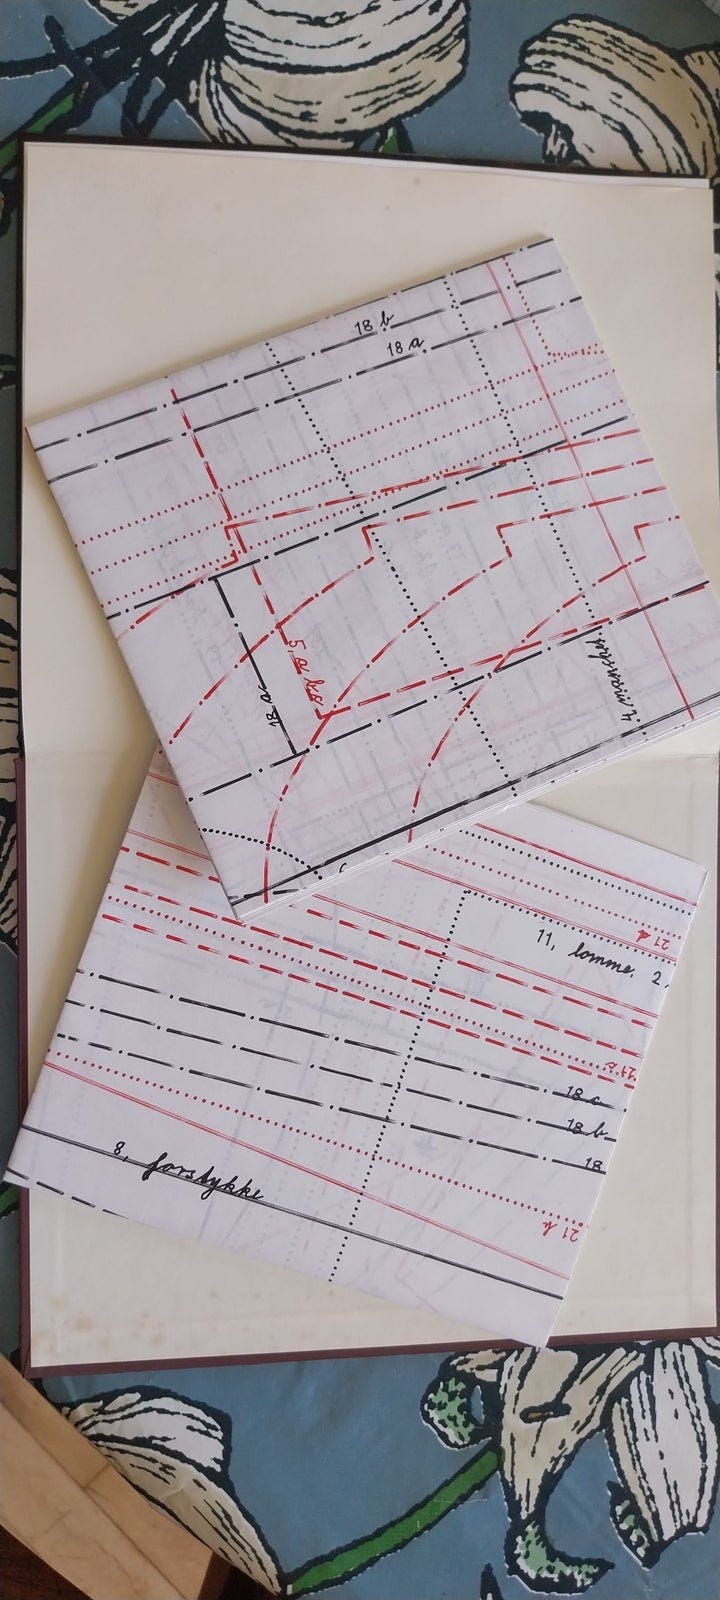 18 b
18 a
5, a b c
18 a
21 d
11, lomme. 2,
21 c
18 c
18 b
18
8, forstykke
21 b